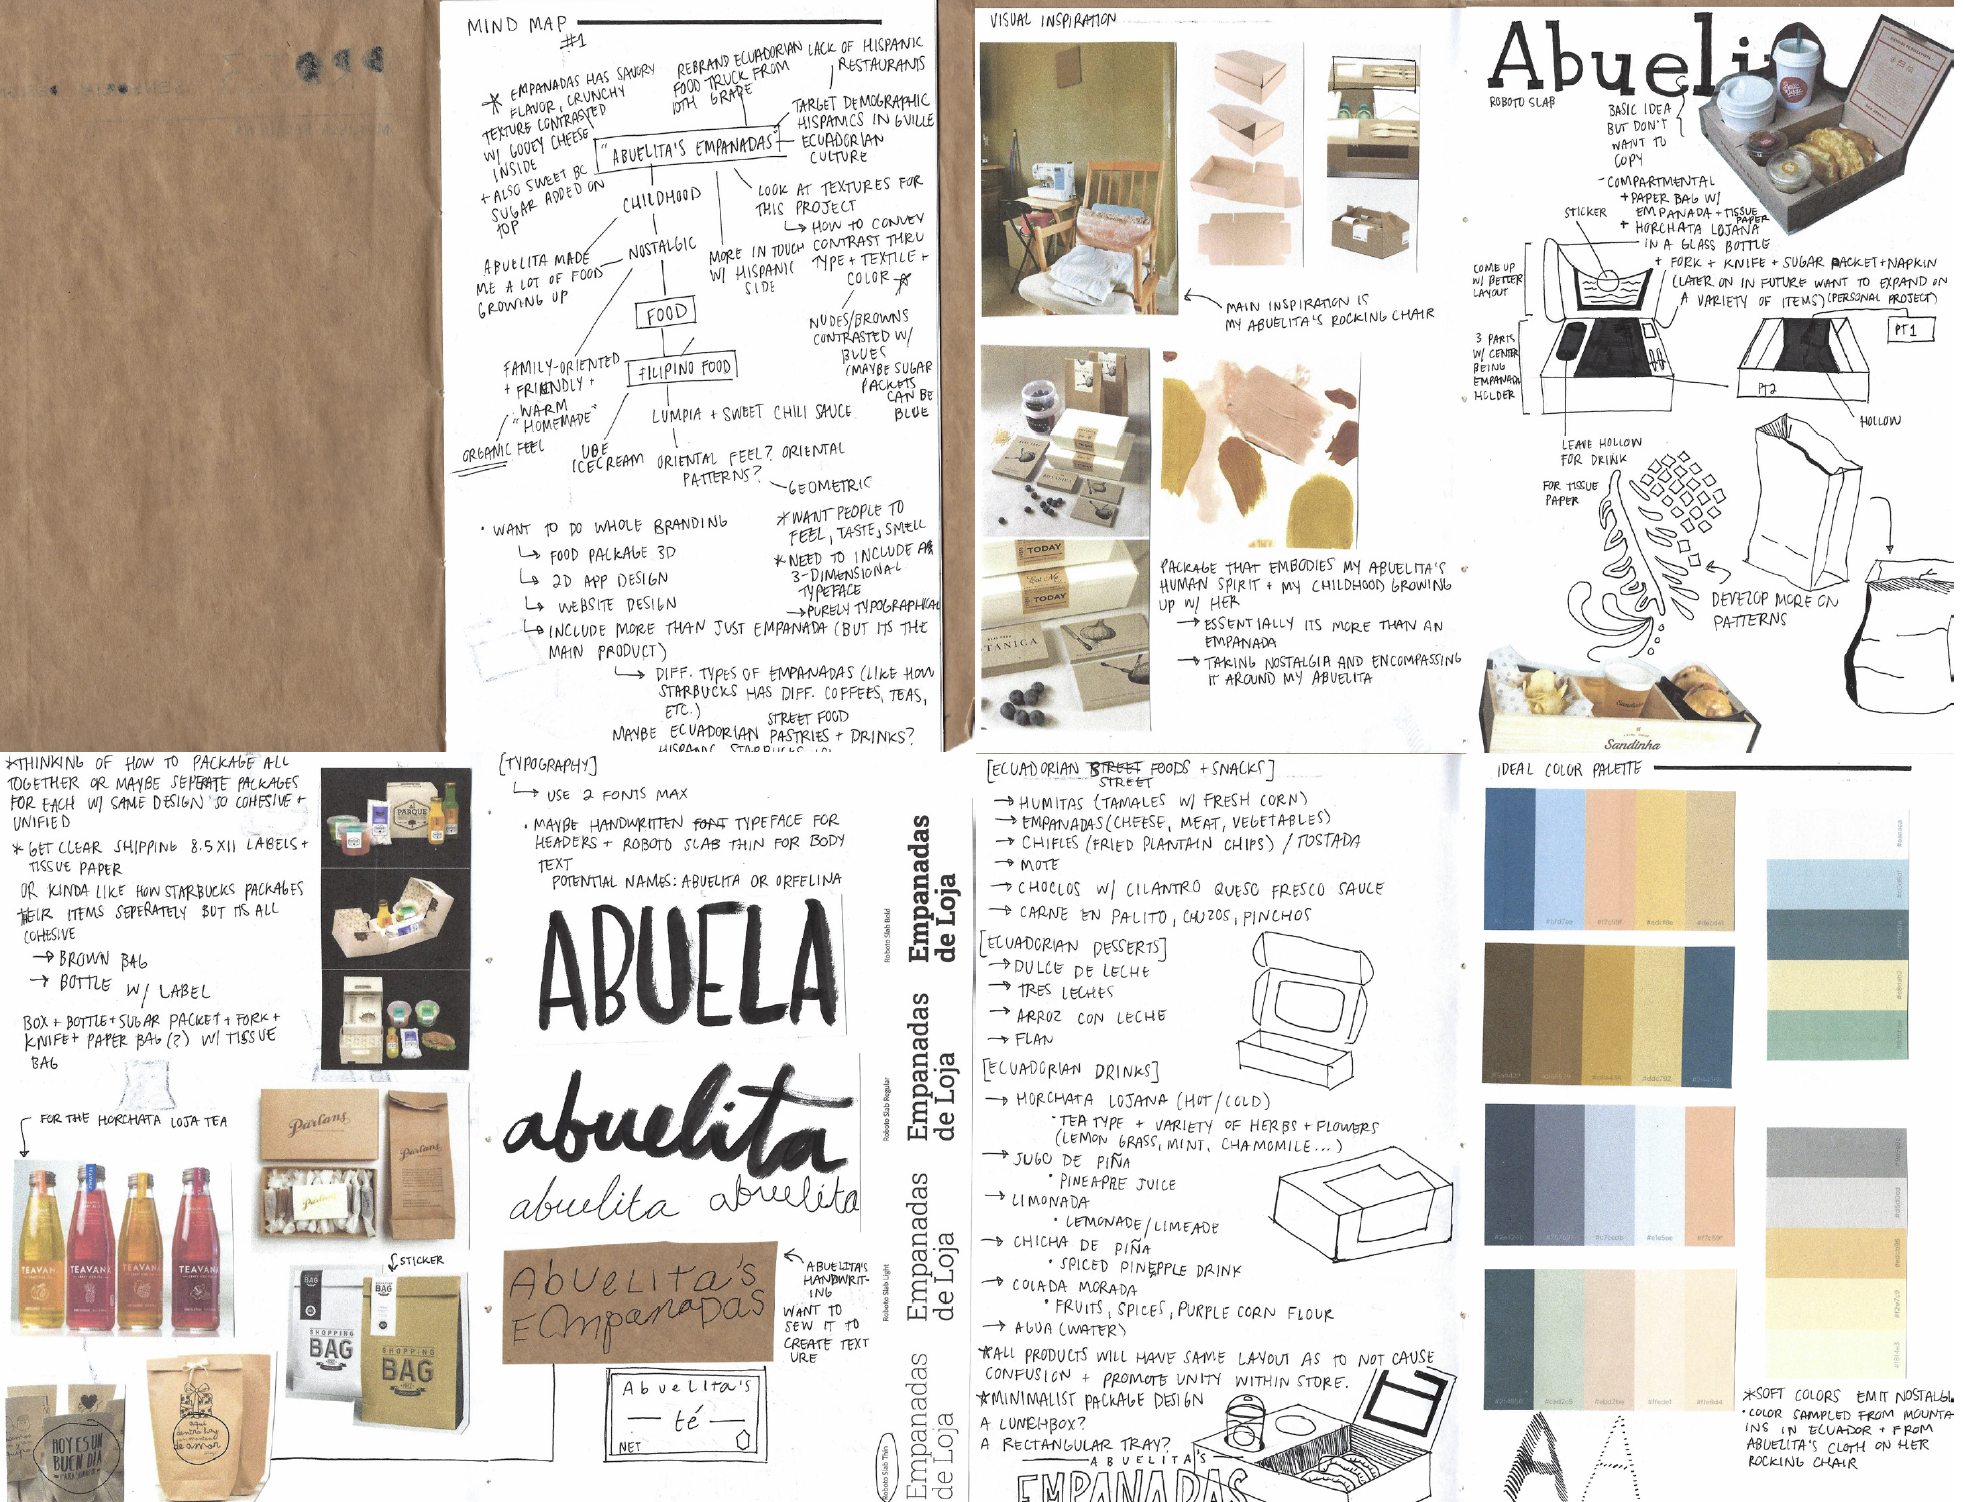 MIND MAP
#1
* EMPANADAS HAS SAVORY
FLAVOR, CRUNCHY
TEXTURE CONTRASTED
W/ GOOEY CHEESE
INSIDE
+ ALSO SWEET BC
SUGAR ADDED ON
TOP
REBRAND ECUADORIAN
FOOD TRUCK FROM
10TH GRADE
LACK OF HISPANIC
RESTAURANTS
TARGET DEMOGRAPHIC
HISPANICS IN GVILLE
ECUADORIAN
CULTURE
"ABUELITA'S EMPANADAS"
CHILDHOOD
NOSTALGIC
ABUELITA MADE
ME A LOT OF FOOD
GROWING UP
MORE IN TOUCH
W/ HISPANIC
SIDE
LOOK AT TEXTURES FOR
THIS PROJECT
HOW TO CONVEY
CONTRAST THRU
TYPE + TEXTILE +
COLOR *
NUDES/BROWNS
CONTRASTED W/
BLUES
(MAYBE SUGAR
PACKETS
CAN BE
BLUE
FOOD
FILIPINO FOOD
FAMILY-ORIENTED
+ FRIENDLY +
"WARM
"HOMEMADE"
ORGANIC FEEL
UBE
ICECREAM
LUMPIA + SWEET CHILI SAUCE
ORIENTAL FEEL? ORIENTAL
PATTERNS?
GEOMETRIC
• WANT TO DO WHOLE BRANDING
FOOD PACKAGE 3D
2D APP DESIGN
WEBSITE DESIGN
INCLUDE MORE THAN JUST EMPANADA (BUT ITS THE
MAIN PRODUCT)
DIFF. TYPES OF EMPANADAS (LIKE HOW
STARBUCKS HAS DIFF. COFFEES, TEAS,
ETC.)
STREET FOOD
MAYBE ECUADORIAN PASTRIES + DRINKS?
* WANT PEOPLE TO
FEEL, TASTE, SMELL
* NEED TO INCLUDE A
3-DIMENSIONAL
TYPEFACE
→ PURELY TYPOGRAPHICAL
VISUAL INSPIRATION
MAIN INSPIRATION IS
MY ABUELITA'S ROCKING CHAIR
TODAY
Eat Me
TODAY
TANIGA
PACKAGE THAT EMBODIES MY ABUELITA'S
HUMAN SPIRIT + MY CHILDHOOD GROWING
UP W/ HER
→ ESSENTIALLY ITS MORE THAN AN
EMPANADA
→ TAKING NOSTALGIA AND ENCOMPASSING
IT AROUND MY ABUELITA
Abueli
ROBOTO SLAB
BASIC IDEA
BUT DON'T
WANT TO
COPY
- COMPARTMENTAL
+ PAPER BAG W/
EMPANADA + TISSUE
PAPER
+ HORCHATA LOJANA
IN A GLASS BOTTLE
+ FORK + KNIFE + SUGAR PACKET + NAPKIN
(LATER ON IN FUTURE WANT TO EXPAND ON
A VARIETY OF ITEMS) (PERSONAL PROJECT)
STICKER
COME UP
W/ BETTER
LAYOUT
3 PARTS
W/ CENTER
BEING
EMPANADA
HOLDER
PT1
PT2
HOLLOW
LEAVE HOLLOW
FOR DRINK
FOR TISSUE
PAPER
DEVELOP MORE ON
PATTERNS
Sandinha
*THINKING OF HOW TO PACKAGE ALL
TOGETHER OR MAYBE SEPERATE PACKAGES
FOR EACH W/ SAME DESIGN SO COHESIVE +
UNIFIED
* GET CLEAR SHIPPING 8.5X11 LABELS +
TISSUE PAPER
OR KINDA LIKE HOW STARBUCKS PACKAGES
THEIR ITEMS SEPERATELY BUT ITS ALL
COHESIVE
→ BROWN BAG
→ BOTTLE W/ LABEL
BOX + BOTTLE + SUGAR PACKET + FORK +
KNIFE + PAPER BAG (?) W/ TISSUE
BAG
PARQUE
FOR THE HORCHATA LOJA TEA
TEAVANA
TEAVANA
TEAVANA
TEAVANA
Partans
Partans
Partans
STICKER
BAG
BAG
SHOPPING
BAG
SHOPPING
BAG
HOY ES UN
BUEN DIA
aquí
dentro hay
de amor
[TYPOGRAPHY]
USE 2 FONTS MAX
• MAYBE HANDWRITTEN FONT TYPEFACE FOR
HEADERS + ROBOTO SLAB THIN FOR BODY
TEXT
POTENTIAL NAMES: ABUELITA OR ORFELINA
ABUELA
abuelita
abuelita abuelita
Abuelita's
Empanadas
ABUELITA'S
HANDWRIT-
ING
WANT TO
SEW IT TO
CREATE TEXT
URE
Abuelita's
té
NET
Roboto Slab Bold
Empanadas
de Loja
Roboto Slab Regular
Empanadas
de Loja
Roboto Slab Light
Empanadas
de Loja
Roboto Slab Thin
Empanadas
de Loja
[ECUADORIAN STREET FOODS + SNACKS]
STREET
→ HUMITAS (TAMALES W/ FRESH CORN)
→ EMPANADAS (CHEESE, MEAT, VEGETABLES)
→ CHIFLES (FRIED PLANTAIN CHIPS) / TOSTADA
→ MOTE
→ CHOCLOS W/ CILANTRO QUESO FRESCO SAUCE
→ CARNE EN PALITO, CHUZOS, PINCHOS
[ECUADORIAN DESSERTS]
→ DULCE DE LECHE
→ TRES LECHES
→ ARROZ CON LECHE
→ FLAN
[ECUADORIAN DRINKS]
→ HORCHATA LOJANA (HOT/COLD)
• TEA TYPE + VARIETY OF HERBS + FLOWERS
(LEMON GRASS, MINT, CHAMOMILE...)
→ JUGO DE PIÑA
• PINEAPPE JUICE
→ LIMONADA
• LEMONADE/LIMEADE
→ CHICHA DE PIÑA
• SPICED PINEPPLE DRINK
→ COLADA MORADA
• FRUITS, SPICES, PURPLE CORN FLOUR
→ AGUA (WATER)
*ALL PRODUCTS WILL HAVE SAME LAYOUT AS TO NOT CAUSE
CONFUSION + PROMOTE UNITY WITHIN STORE.
*MINIMALIST PACKAGE DESIGN
A LUNCHBOX?
A RECTANGULAR TRAY?
ABUELITA'S
EMPANADAS
IDEAL COLOR PALETTE
*SOFT COLORS EMIT NOSTALGI
• COLOR SAMPLED FROM MOUNTA
INS IN ECUADOR + FROM
ABUELITA'S CLOTH ON HER
ROCKING CHAIR
A A